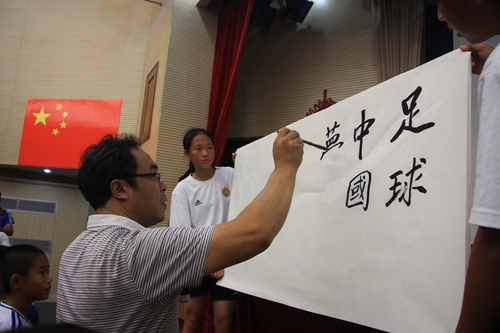 足球
中國
夢